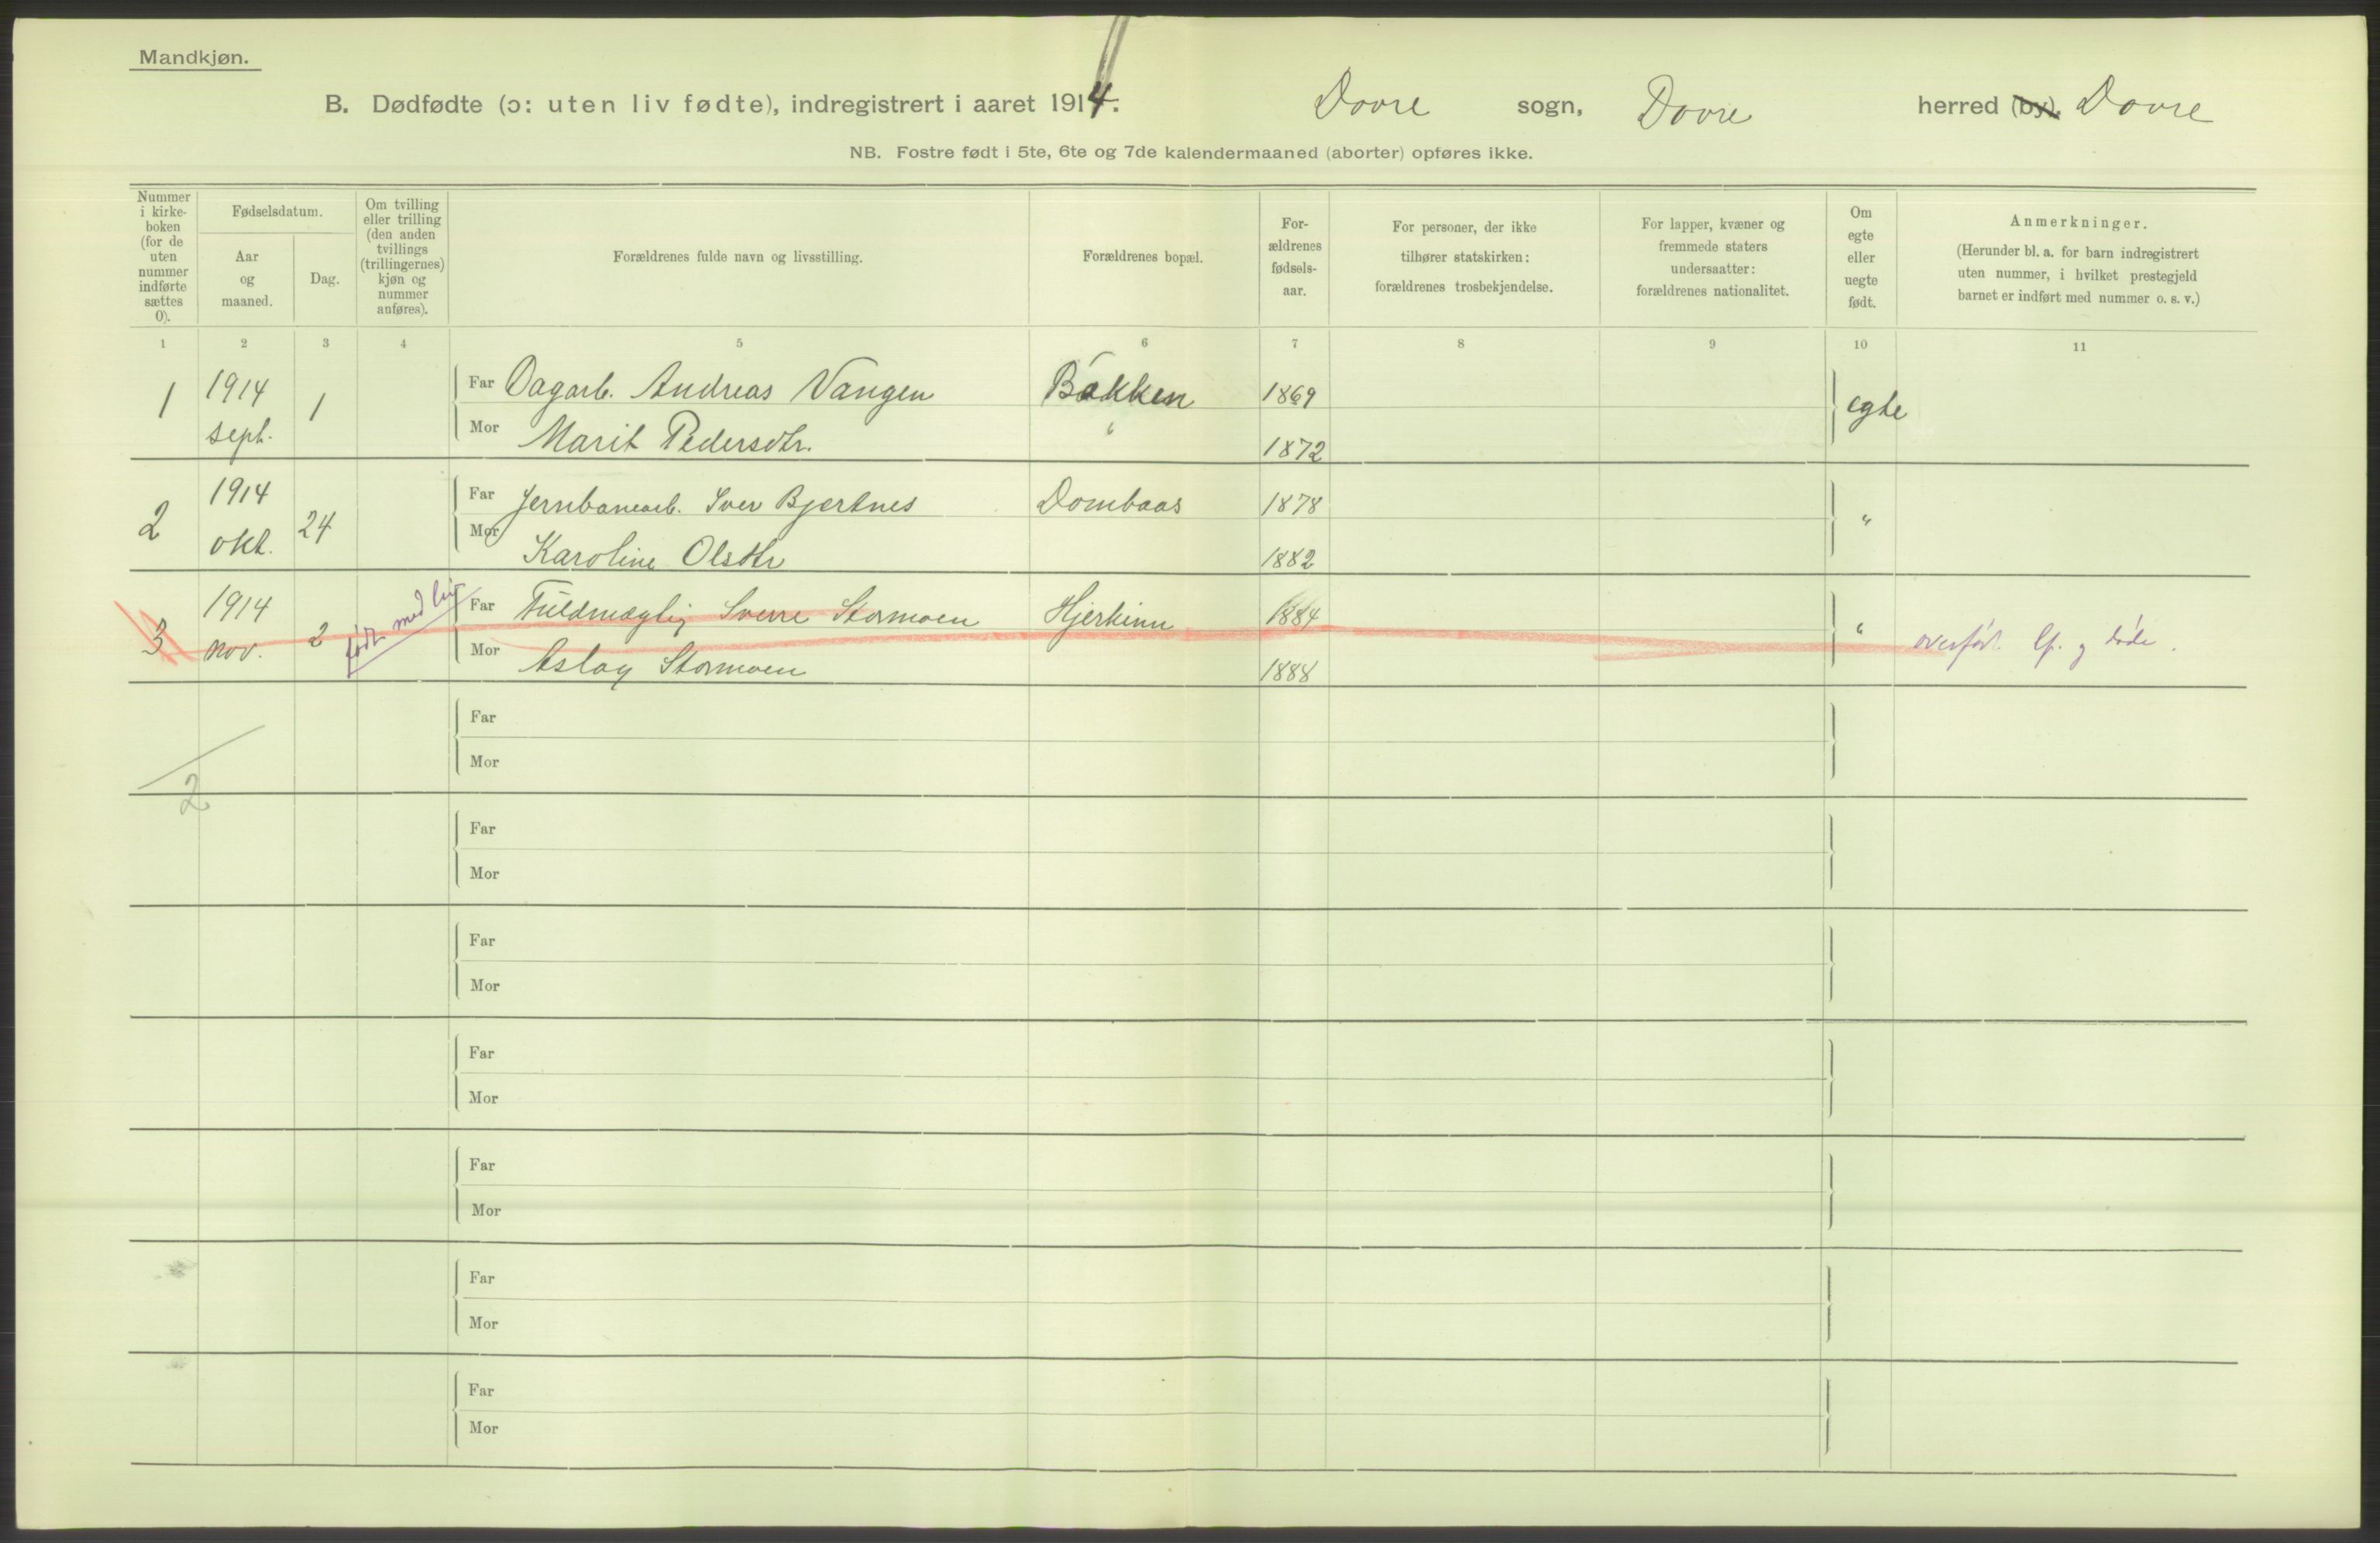 Mandkjøn.
B. Dødfødte (ɔ: uten liv fødte), indregistrert i aaret 1914. Dovre sogn, Dovre herred (by). Dovre
NB. Fostre født i 5te, 6te og 7de kalendermaaned (aborter) opføres ikke.
Nummer
i kirke-
boken
(for de
uten
nummer
indførte
sættes
0).
Fødselsdatum.
Aar
og
maaned.
Dag.
Om tvilling
eller trilling
(den anden
tvillings
(trillingernes)
kjøn og
nummer
anføres).
Forældrenes fulde navn og livsstilling.
Forældrenes bopæl.
For-
ældrenes
fødsels-
aar.
For personer, der ikke
tilhører statskirken:
forældrenes trosbekjendelse.
For lapper, kvæner og
fremmede staters
undersaatter:
forældrenes nationalitet.
Om
egte
eller
uegte
født.
Anmerkninger.
(Herunder bl. a. for barn indregistrert
uten nummer, i hvilket prestegjeld
barnet er indført med nummer o. s. v.)
1 2 3 4 5 6 7 8 9 10 11
1 1914 sept. 1 Far Dagarb. Andreas Vangen Bakken 1869 egte
Mor Marit Pedersdtr. " 1872
2 1914 okt. 24 Far Jernbanearb. Iver Bjertnes Dombaas 1878 "
Mor Karoline Olsdtr 1882
3 1914 nov. 2 født med liv Far Fuldmægtig Sverre Stormoen Hjerkinn 1884 " overført lf. g døde.
Mor Aslaug Stormoen 1888
Far
Mor
2
Far
Mor
Far
Mor
Far
Mor
Far
Mor
Far
Mor
Far
Mor